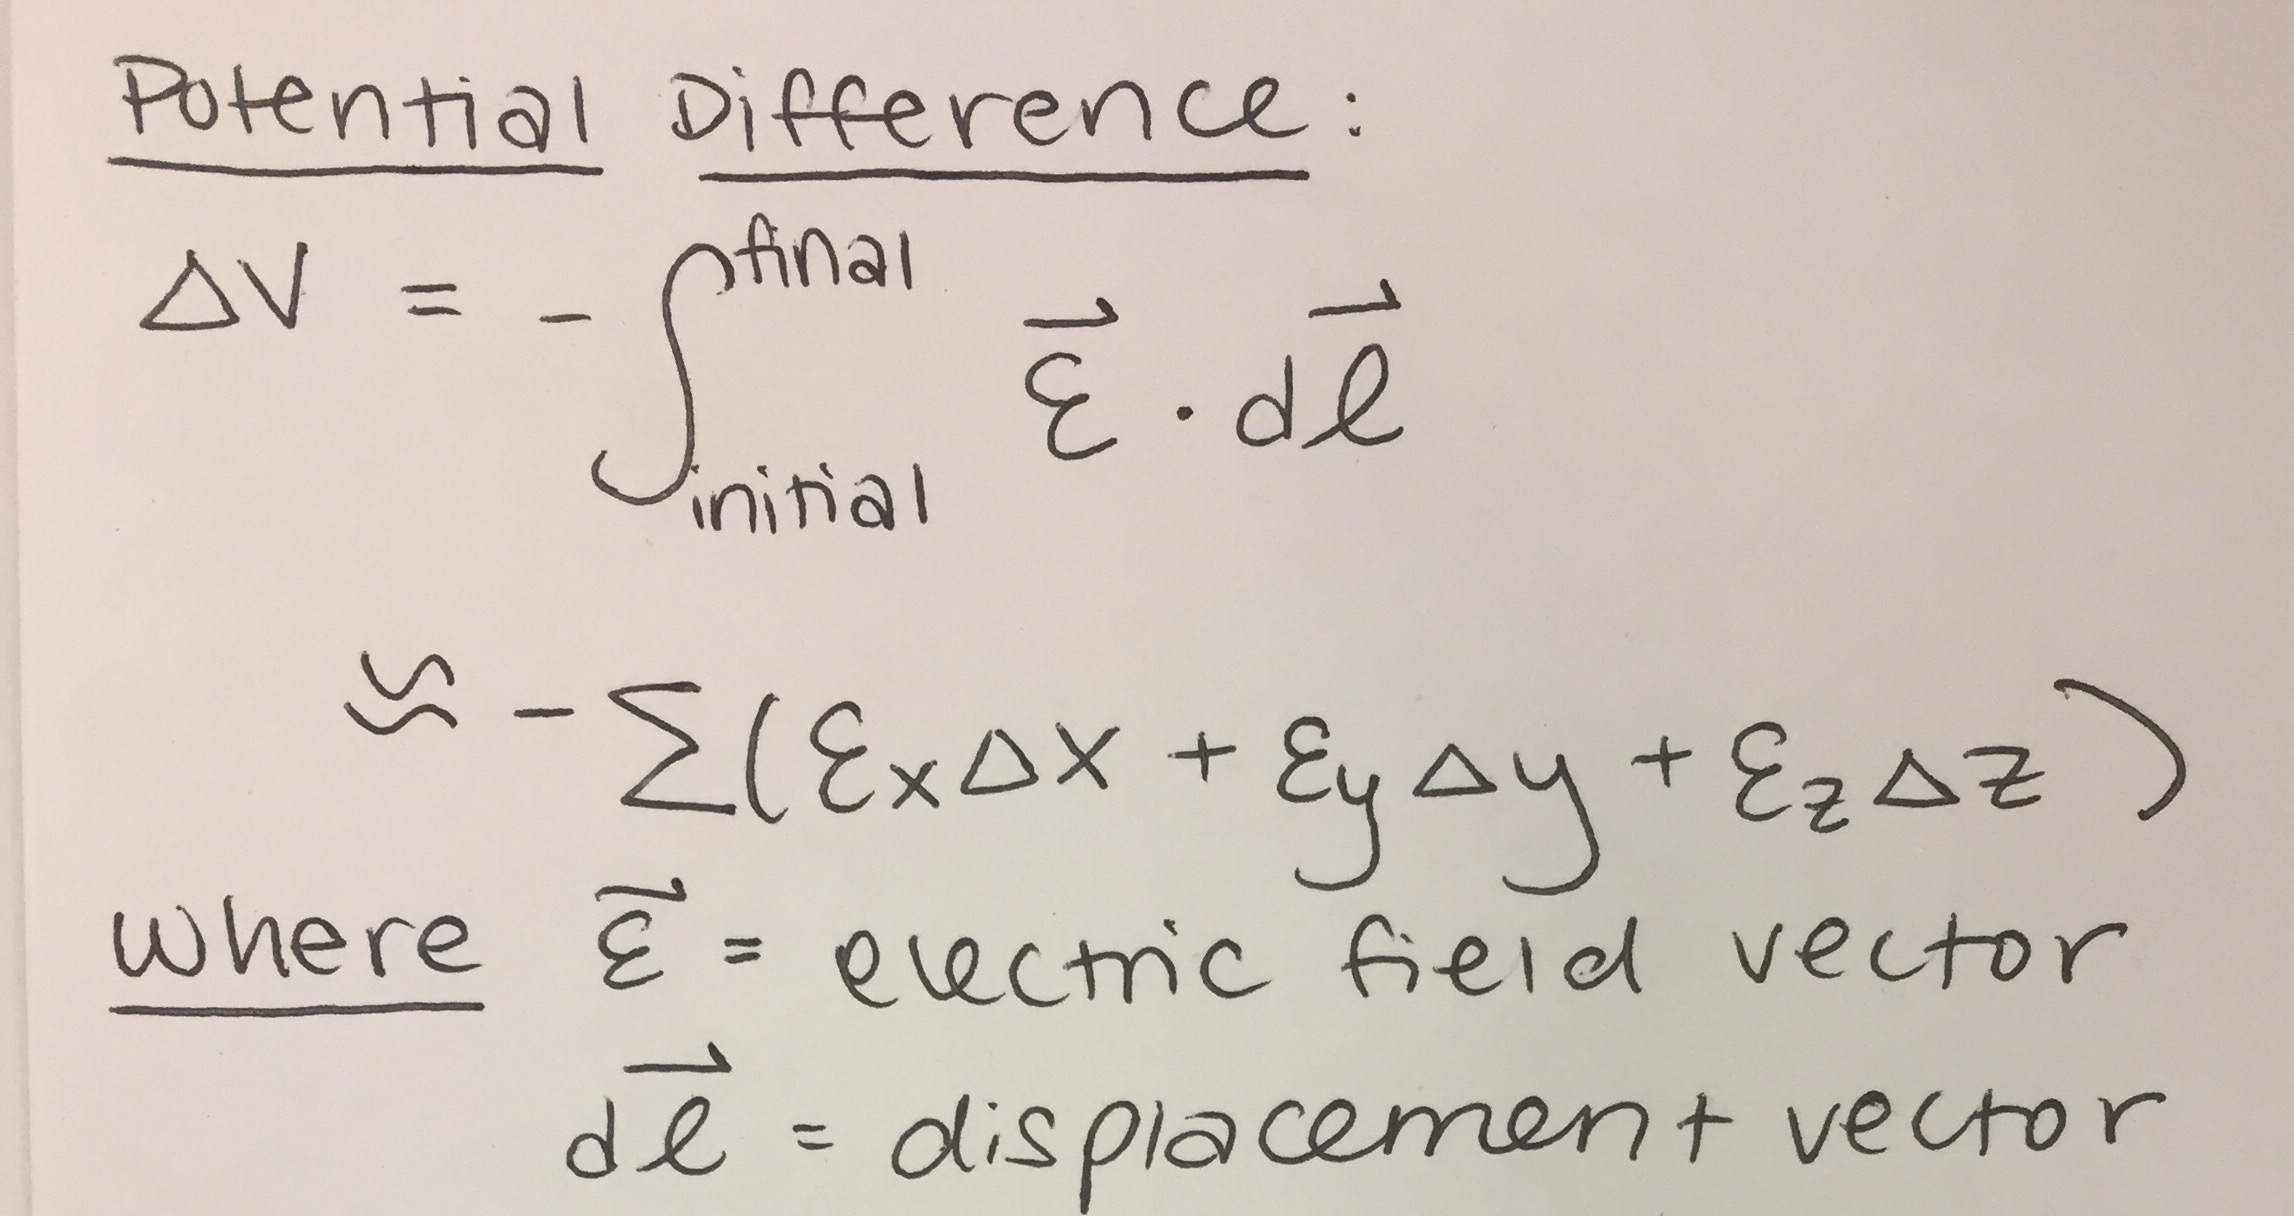 Potential Difference:
ΔV = -∫_initial^final ℰ⃗ · dℓ⃗
≈ -Σ(ℰₓΔx + ℰ_yΔy + ℰ_zΔz)
where ℰ⃗ = electric field vector
dℓ⃗ = displacement vector